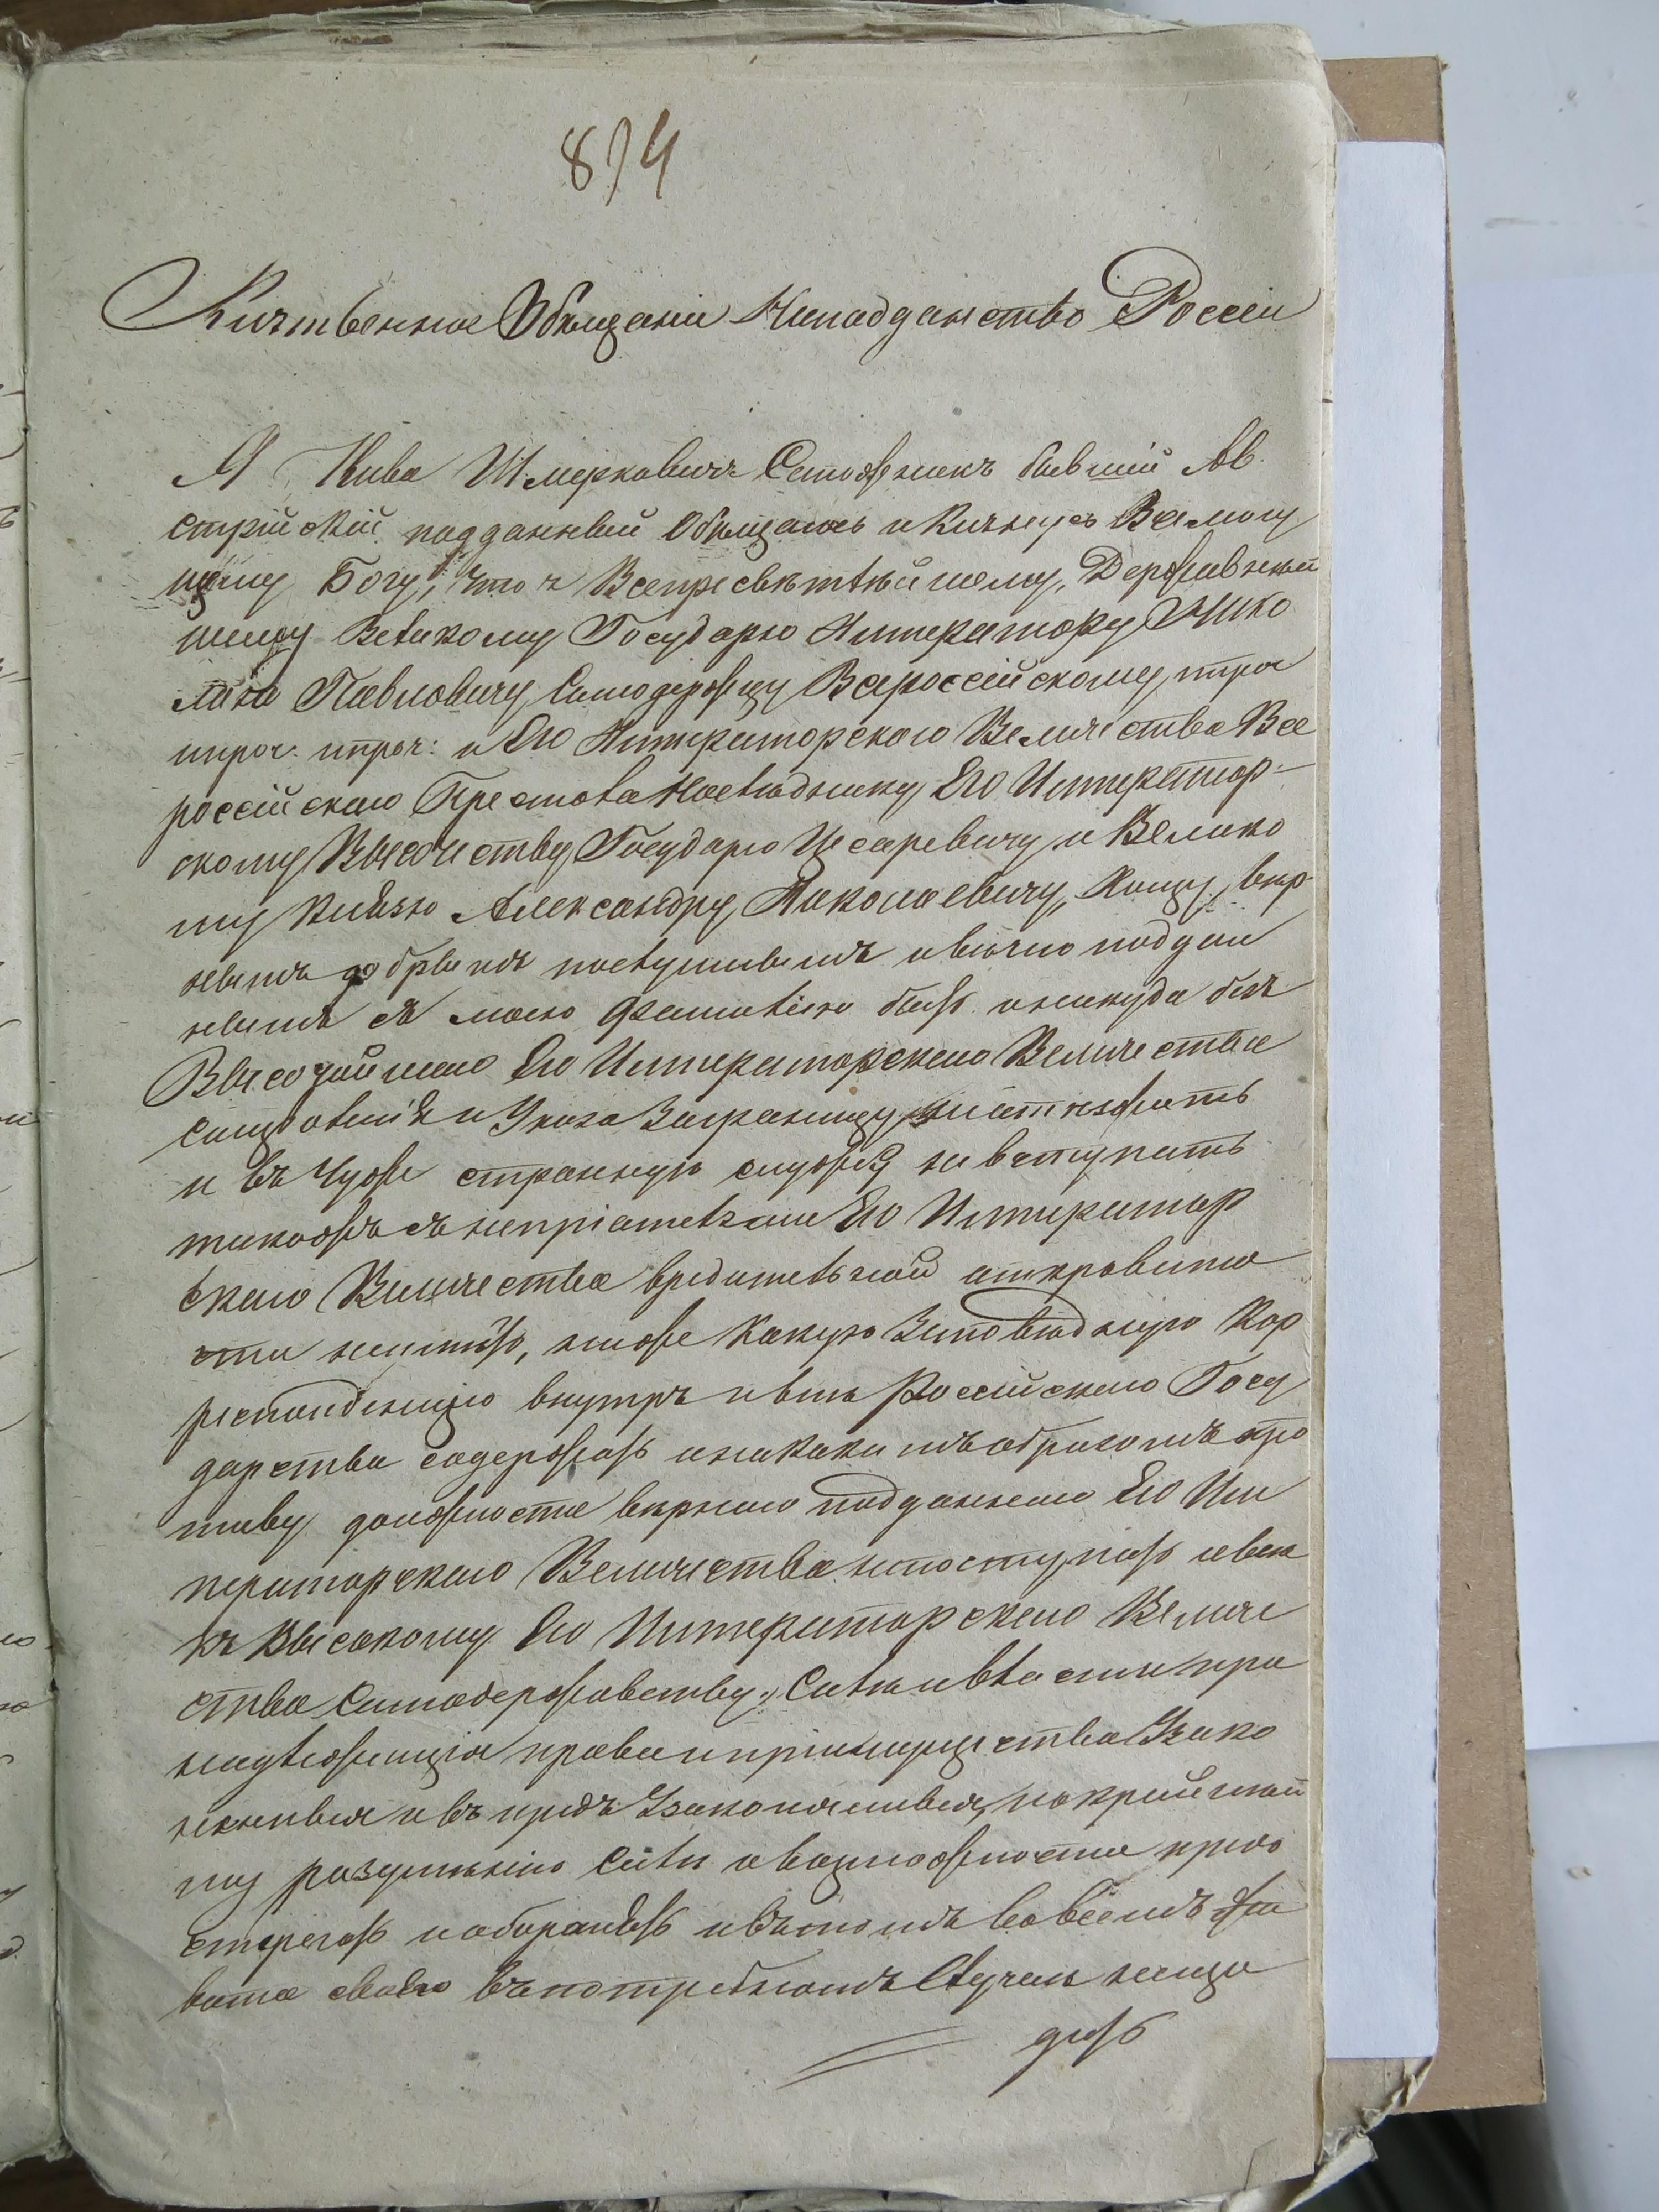 874
Клятвенное Обѣщаніе Наподданство Россіи
Я Кива Шмерковичъ бывшій Ав
стрійскій подданный Обѣщаюсь и Клянусь Всемогу
щему Богу, что Всепресвѣтлѣйшему, Державнѣй
шему Великому Государю Императору Нико
лаю Павловичу Самодержцу Всероссійскому, ипроч
ипроч: ипроч: и Его Императорскаго Величества Все
россійскаго Престола Наслѣднику Его Император-
скому Высочеству Государю Цесаревичу и Велико
му Князю Александру Николаевичу, Хощу, вѣр
нымъ добрымъ послушнымъ ивѣчно поддан
нымъ съ моею Фамиліею быть иникуда безъ
Высочайшаго Его Императорскаго Величества
соизволенія и Указа Заграницу неотъезжать
и въ Чуже странную службу не вступать
такожъ съ непріятельми Его Император
скаго Величества вредительной откровенно
сти неимѣть, ниже какую Заповѣдную Кор
респонденцію внутрь ивнѣ Россійскаго Госу
дарства содержать иникакимъ образомъ про
тиву должности вѣрнаго подданнаго Его Им
ператорскаго Величества непоступать ивсѣ
къ Высокому Его Императорскаго Величе
ства Самодержавству, Силѣ ивласти при
надлежащія права ипріимущества Узако
ненныя ивъ предъ Узаконяемыя, по крайнѣй
му разумѣнію Силѣ ивозможности предо
стрегать иоборонять ивътомъ вовсемъ жи
вота своего въпотребномъ Случаѣ нещa
дить